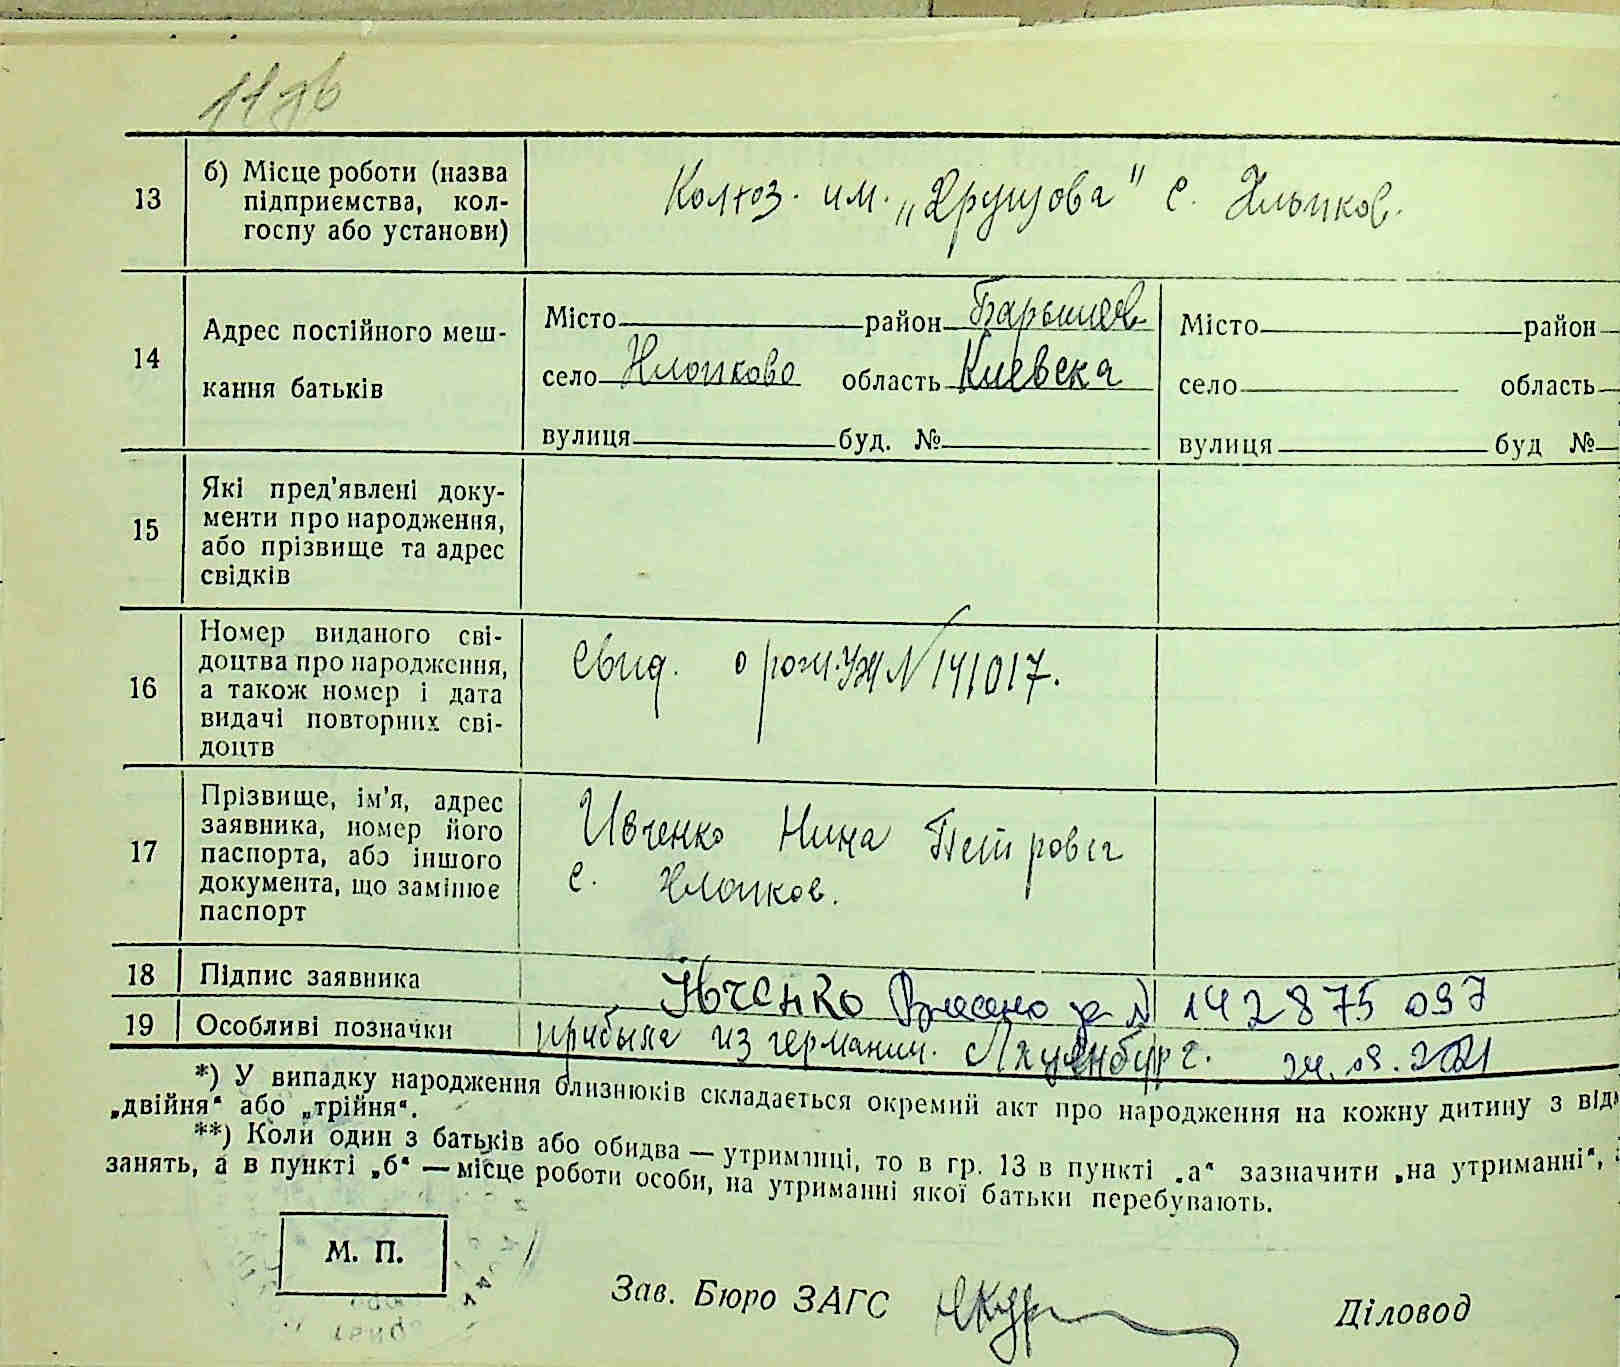 13
б) Місце роботи (назва
підприємства, кол-
госпу або установи)
Колхоз. им. „Хрущова" с. Хлопков.
14
Адрес постійного меш-
кання батьків
Місто район Барышев.
село Хлопково область Киевска
вулиця буд. №
Місто район
село область
вулиця буд №
15
Які пред'явлені доку-
менти про народження,
або прізвище та адрес
свідків
16
Номер виданого сві-
доцтва про народження,
а також номер і дата
видачі повторних сві-
доцтв
Свид. о рож. УЖ N 141017.
17
Прізвище, ім'я, адрес
заявника, номер його
паспорта, або іншого
документа, що замінює
паспорт
Ивченко Нина Петровна
с. Хлопков.
18 Підпис заявника
Ивченко Внесено за № 142875 097
19 Особливі позначки
прибыла из германии. 24.09.2021
*) У випадку народження близнюків складається окремий акт про народження на кожну дитину з
„двійня“ або „трійня“.
**) Коли один з батьків або обидва — утриманці, то в гр. 13 в пункті „а“ зазначити „на утриманні“,
занять, а в пункті „б“ — місце роботи особи, на утриманні якої батьки перебувають.
М. П.
Зав. Бюро ЗАГС
Діловод